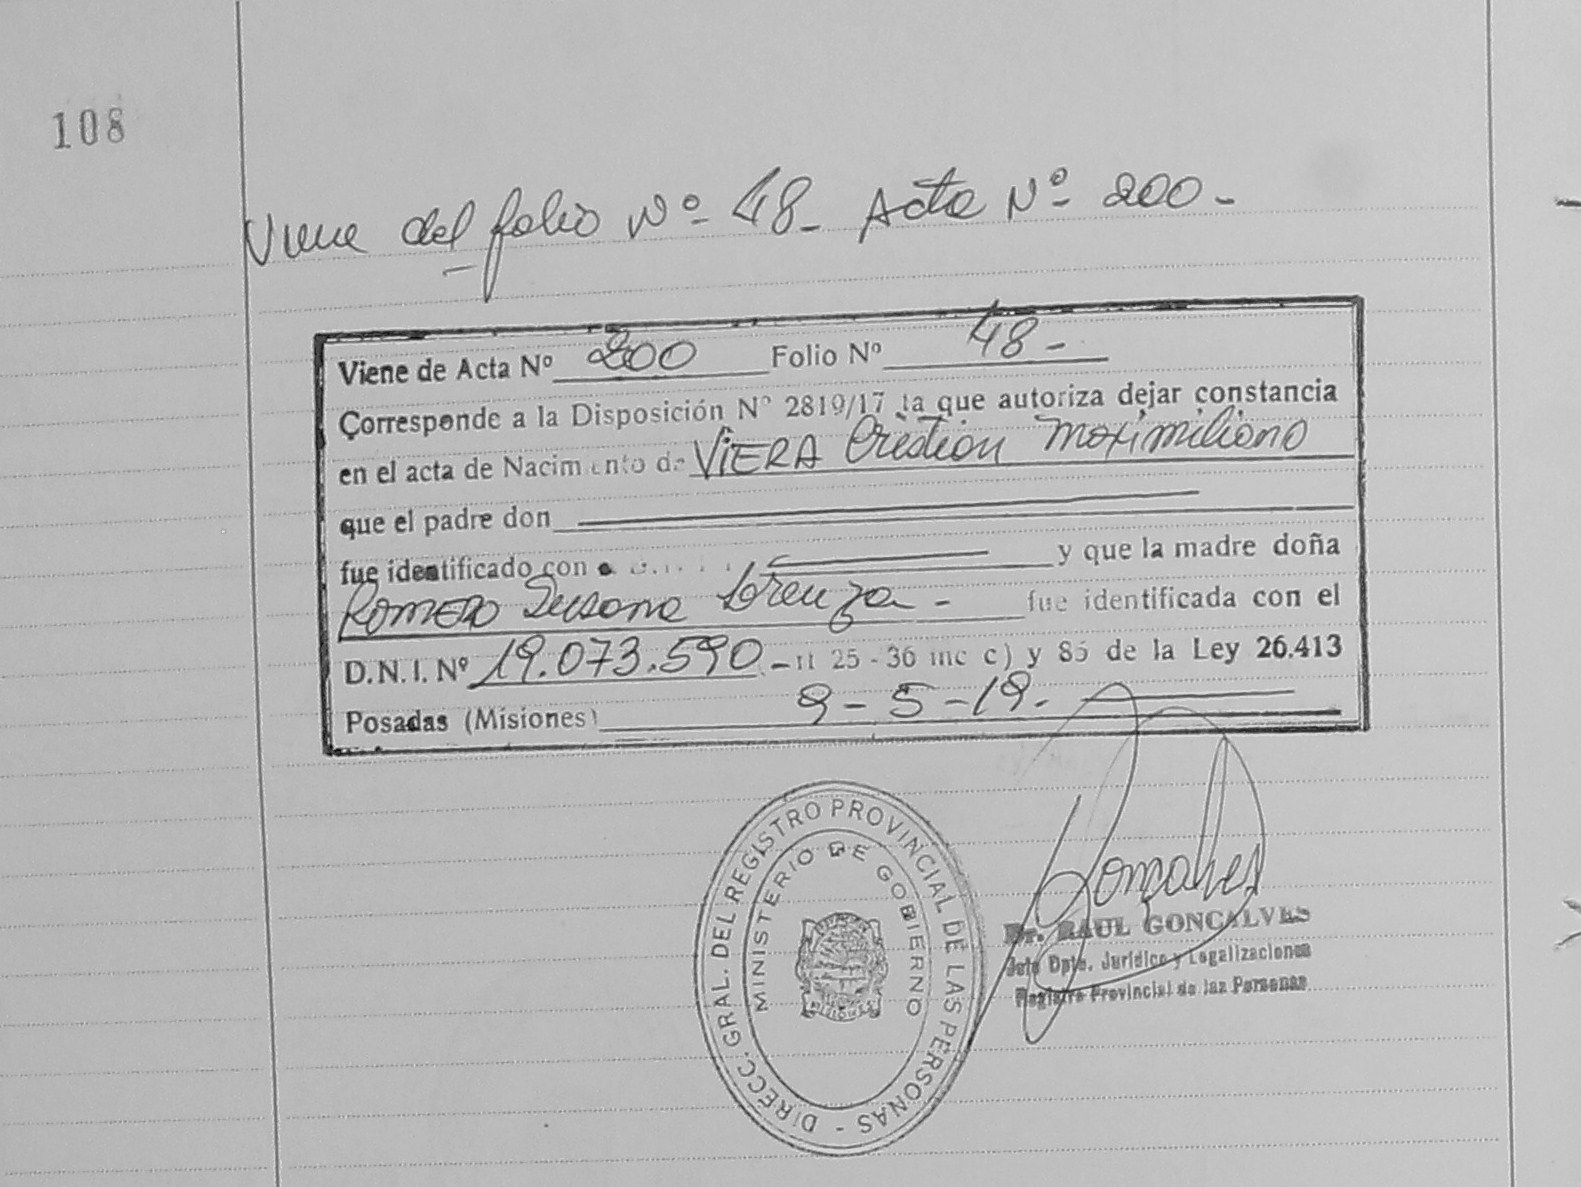 108
Viene del folio Nº 48- Acta Nº 200-
Viene de Acta Nº 200 Folio Nº 48-
Corresponde a la Disposición Nº 2819/17 la que autoriza dejar constancia
en el acta de Nacimiento de VIERA Cristian Maximiliano
que el padre don
fue identificado con y que la madre doña
ROMERO Susana Lorenza- fue identificada con el
D.N.I. Nº 19.073.590- 25-36 inc c) y 85 de la Ley 26.413
Posadas (Misiones) 9-5-19.
DIRECC. GRAL. DEL REGISTRO PROVINCIAL DE LAS PERSONAS -
MINISTERIO DE GOBIERNO
MISIONES
Gonçalves
Dr. RAUL GONCALVES
Jefe Dpto. Jurídico y Legalizaciones
Registro Provincial de las Personas